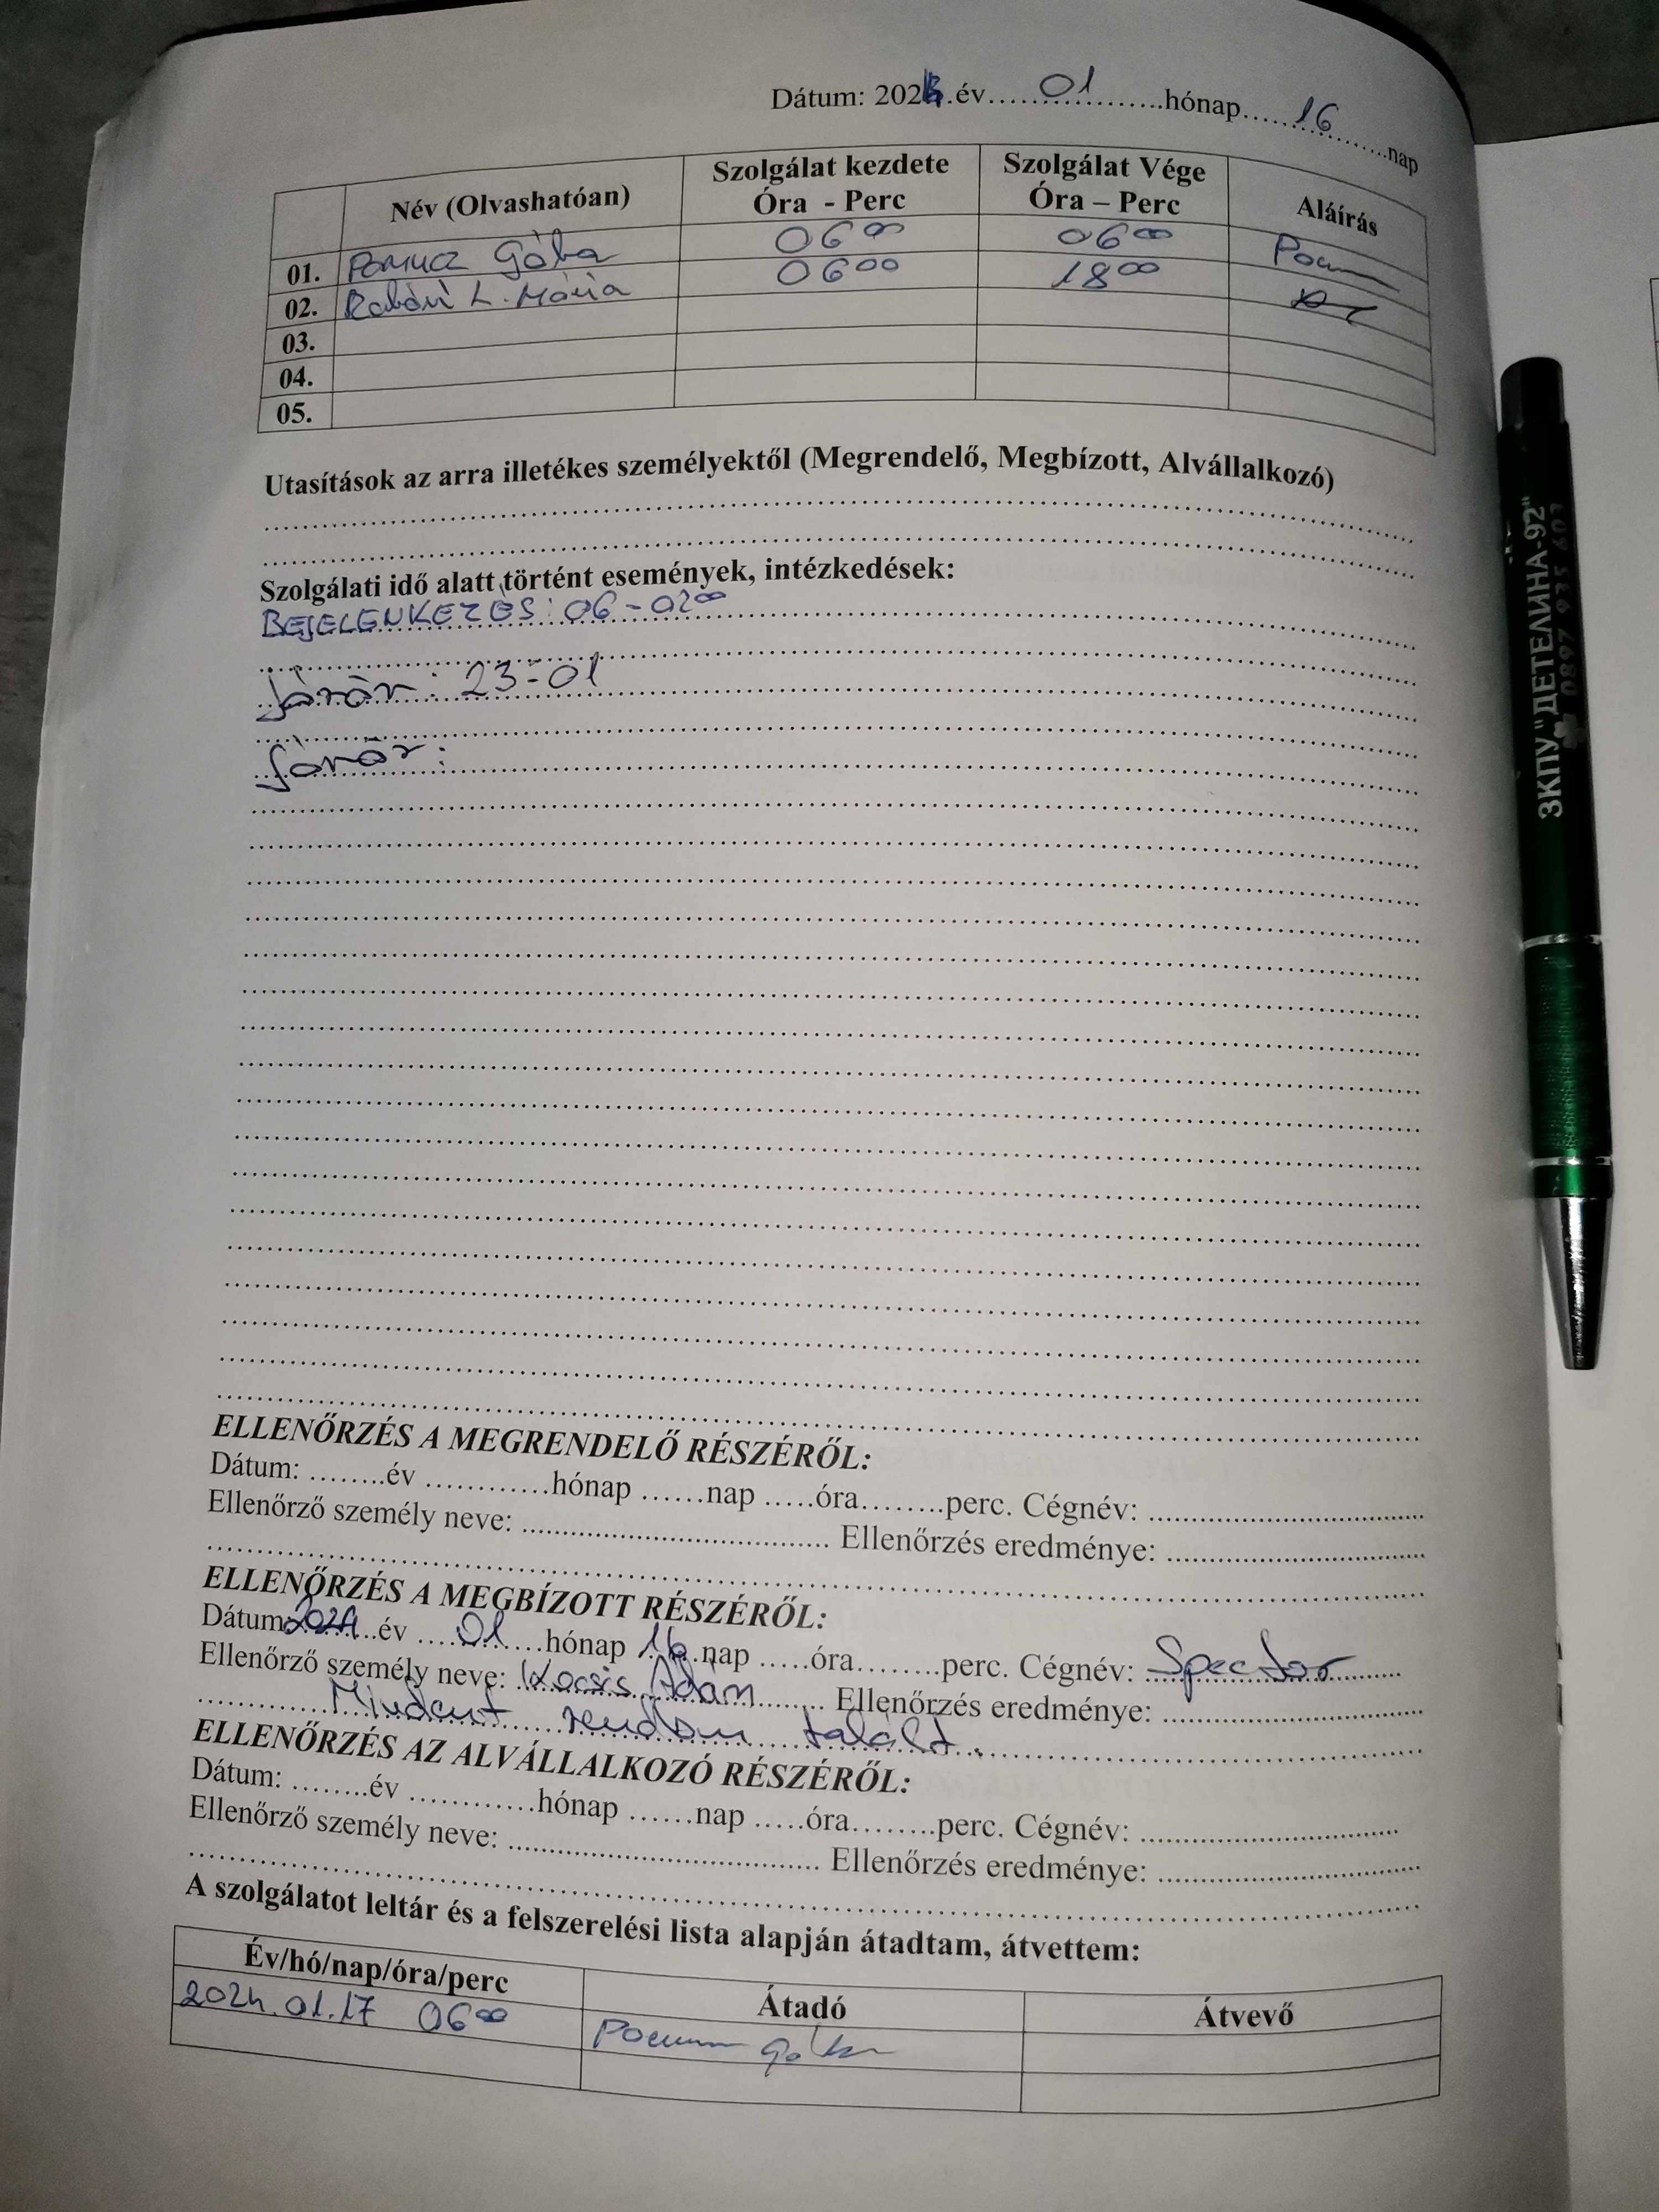 Dátum: 2024.év....01....hónap....16....nap
Név (Olvashatóan) Szolgálat kezdete Óra - Perc Szolgálat Vége Óra – Perc Aláírás
01. Gába 06 00 06 00
02. L. Mária 06 00 18 00
03.
04.
05.
Utasítások az arra illetékes személyektől (Megrendelő, Megbízott, Alvállalkozó)
Szolgálati idő alatt történt események, intézkedések:
BEJELENKEZÉS: 06-02 00
Járőr: 23-01
Járőr:
ELLENŐRZÉS A MEGRENDELŐ RÉSZÉRŐL:
Dátum: ........év ............hónap ......nap .....óra........perc. Cégnév: ..............................
Ellenőrző személy neve: .................................. Ellenőrzés eredménye: ..............................
ELLENŐRZÉS A MEGBÍZOTT RÉSZÉRŐL:
Dátum: 2024 év 01 hónap 16 nap .....óra........perc. Cégnév: Spector
Ellenőrző személy neve: Kocsis Ádám Ellenőrzés eredménye: ..............................
Mindent rendben talált.
ELLENŐRZÉS AZ ALVÁLLALKOZÓ RÉSZÉRŐL:
Dátum: ........év ............hónap ......nap .....óra........perc. Cégnév: ..............................
Ellenőrző személy neve: .................................. Ellenőrzés eredménye: ..............................
A szolgálatot leltár és a felszerelési lista alapján átadtam, átvettem:
Év/hó/nap/óra/perc Átadó Átvevő
2024.01.17 06 00
ЗКПУ "ДЕТЕЛИНА-92"
0897 935 603